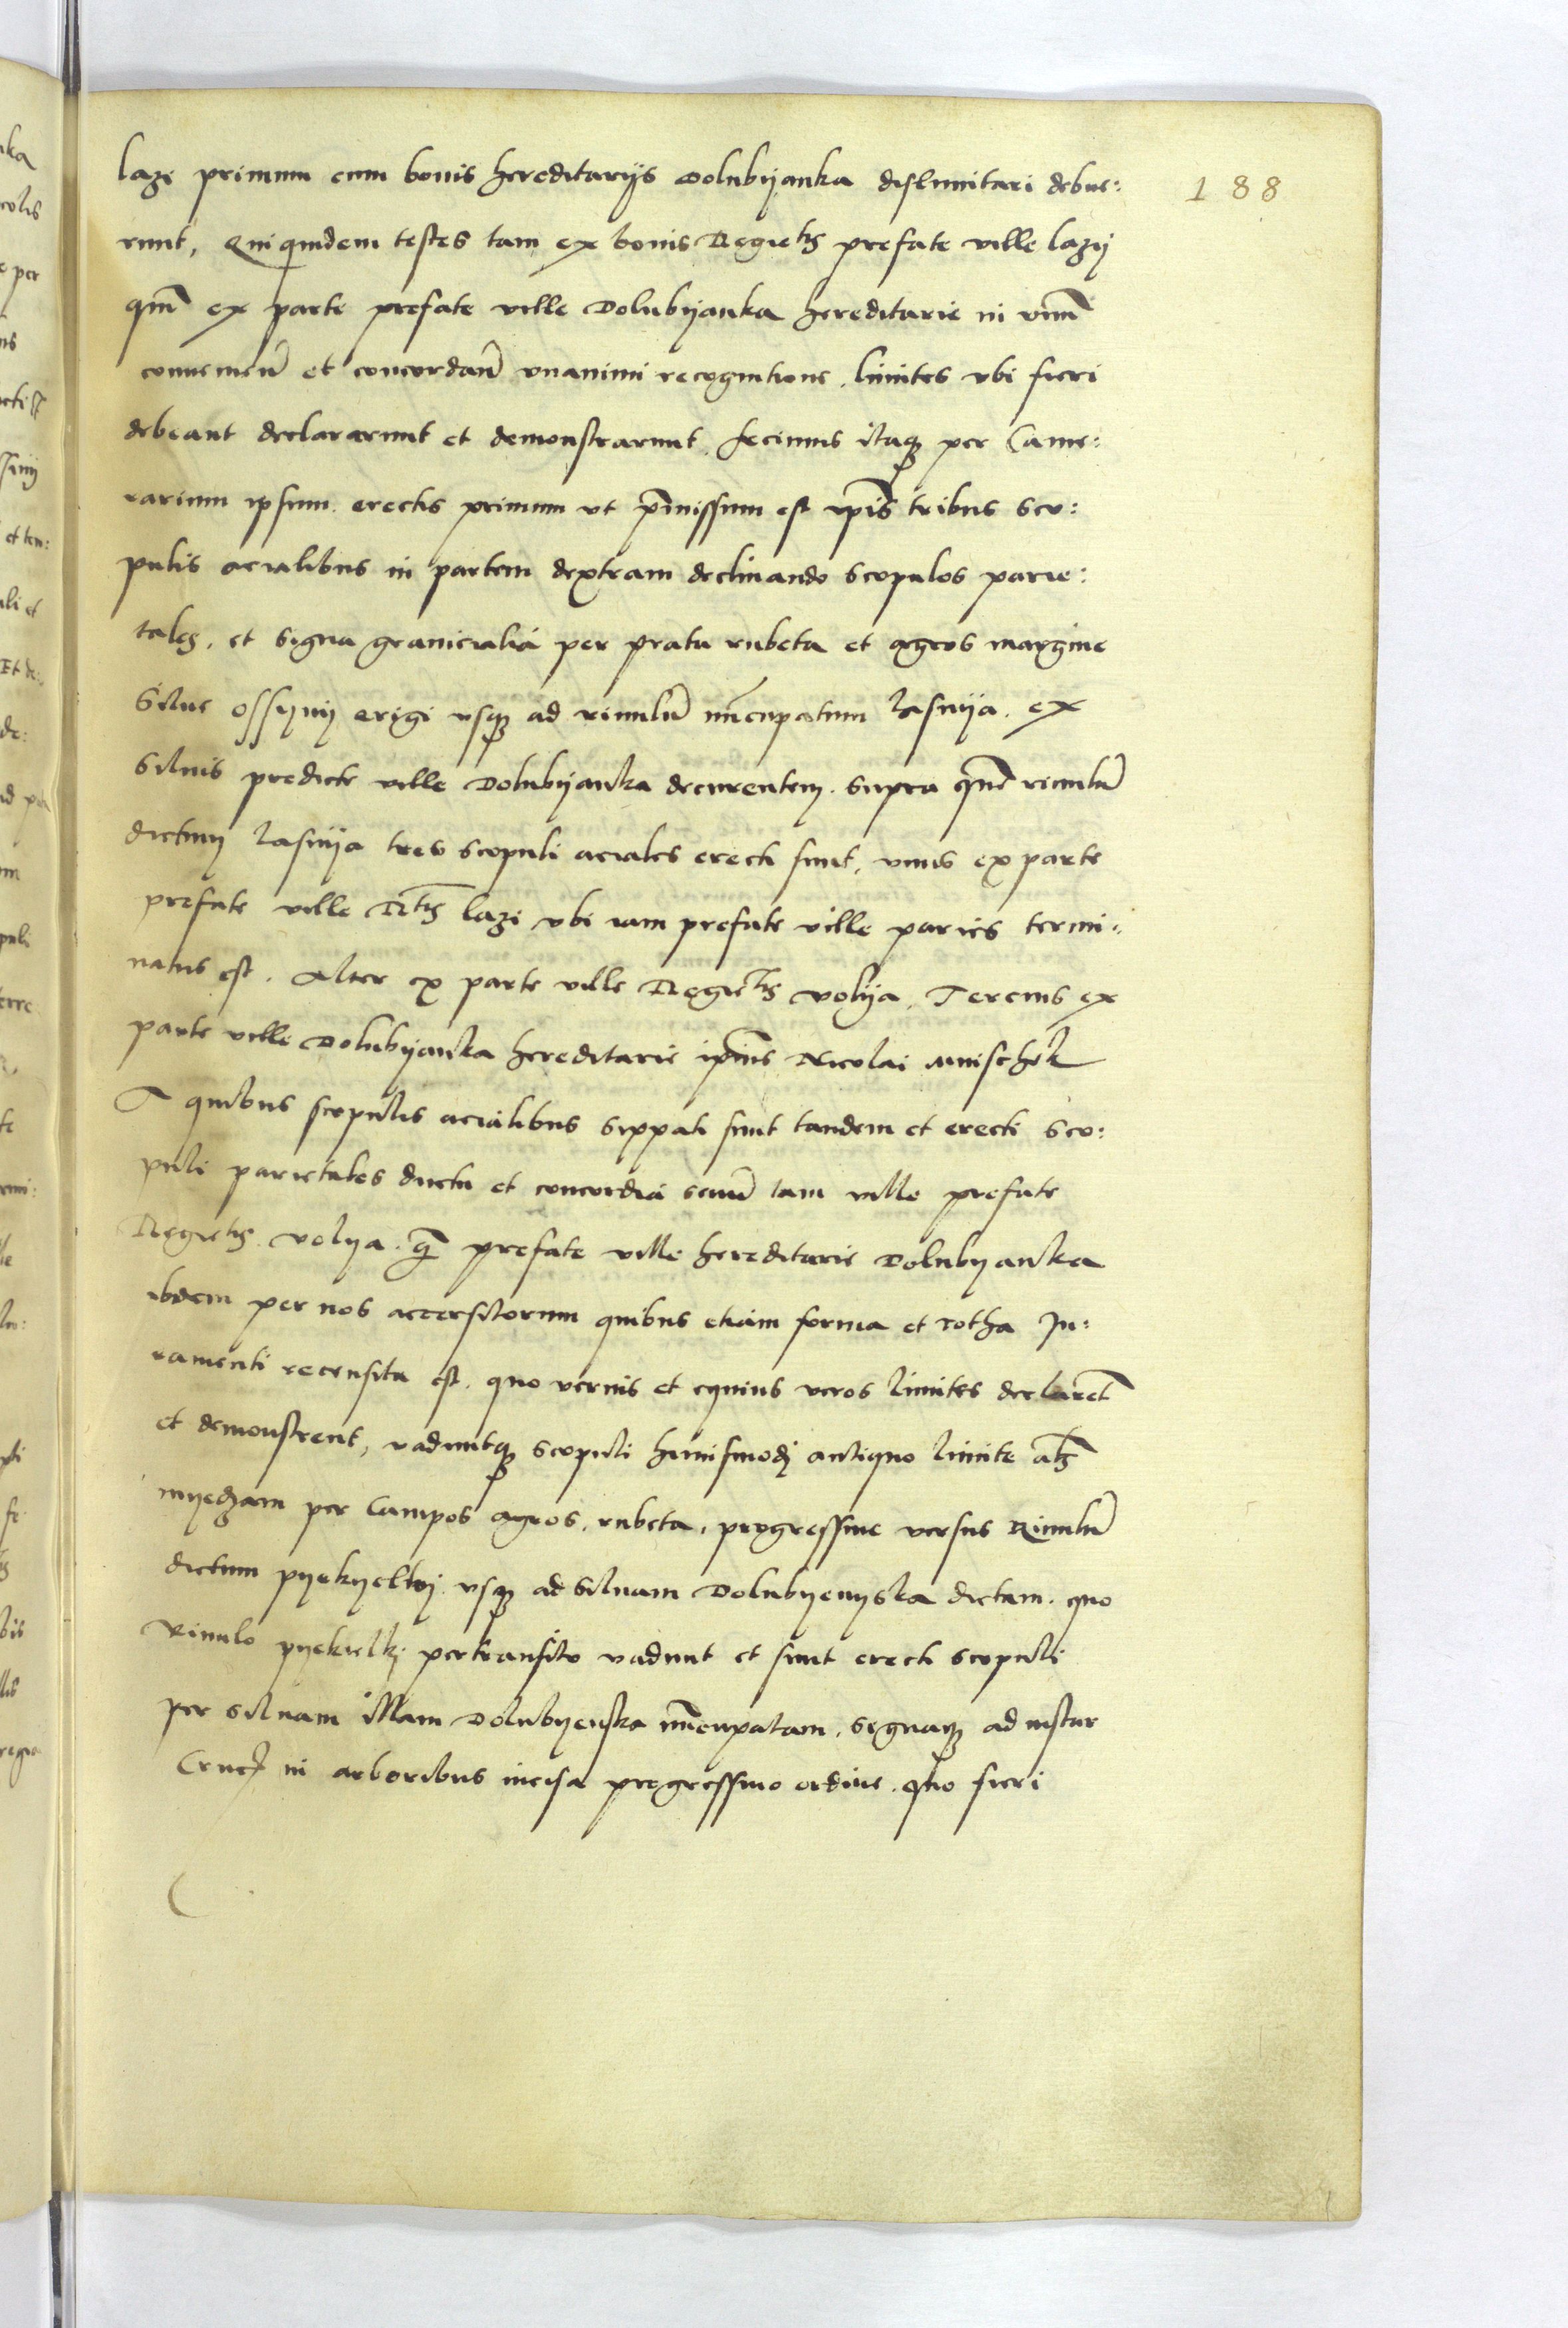 188
lazi primum cum bonis hereditarijs Dolubijanka dislimitari debue:
runt, Quiquidem testes tam ex bonis Regie[ta]tis prefate ville lazij
qu̅m ex parte prefate ville Dolubijanka hereditarie in vnu̅
conuenieṅ et concordaṅ vnanimi recognitione. limites vbi fieri
debeant declararunt et demonstrarunt. fecimus itaq; per Came:
rarium ipsum erectis primum vt p̅missum est ip̅is tribus sco:
pulis acialibus in partem dextram declinando scopulos parie:
tales, et signa granicialia per prata rubeta et agros margine
Silue ossijnij erigi vsq; ad riuulu̅ nu̅cupatum Jasnija. ex
Siluis predicte ville Dolubijanka decurentem. supra que̅ riuulu̅
dictum Jasnija tres scopuli aciales erecti sunt, vnus ex parte
prefate ville R̅tis lazi vbi iam prefate ville paries termi:
natus est. Alter ex parte ville Regietis volija. Tercius ex
parte ville Dolubijanka hereditarie ip̅ius Nicolai Mnischek
A quibus scopulis acialibus sippati sunt tandem et erecti sco:
puli parietales ductu et concordia senu̅ tam ville prefate
Regietis volija. q̅ prefate ville hereditarie Dolubijanka
ibidem per nos accersitorum quibus etiam forma et rotha Ju:
ramenti recensita est. quo verius et equius veros limites declare̅t
et demonstrent, vaduntq; scopuli huiusmodj antiquo limite al̅s
mijedzam per Campos agros, rubeta, progressiue versus Riuulu̅
dictum pijekijelkij vsq; ad siluam Dolubijenijska dictam. quo
Riuulo pijekielkj pertransito vadunt et sunt erecti scopuli
per siluam illam Dolubijenska nu̅cupatam, signaq; ad instar
Crucis in arboribus incisa progressiuo ordine. quo fieri